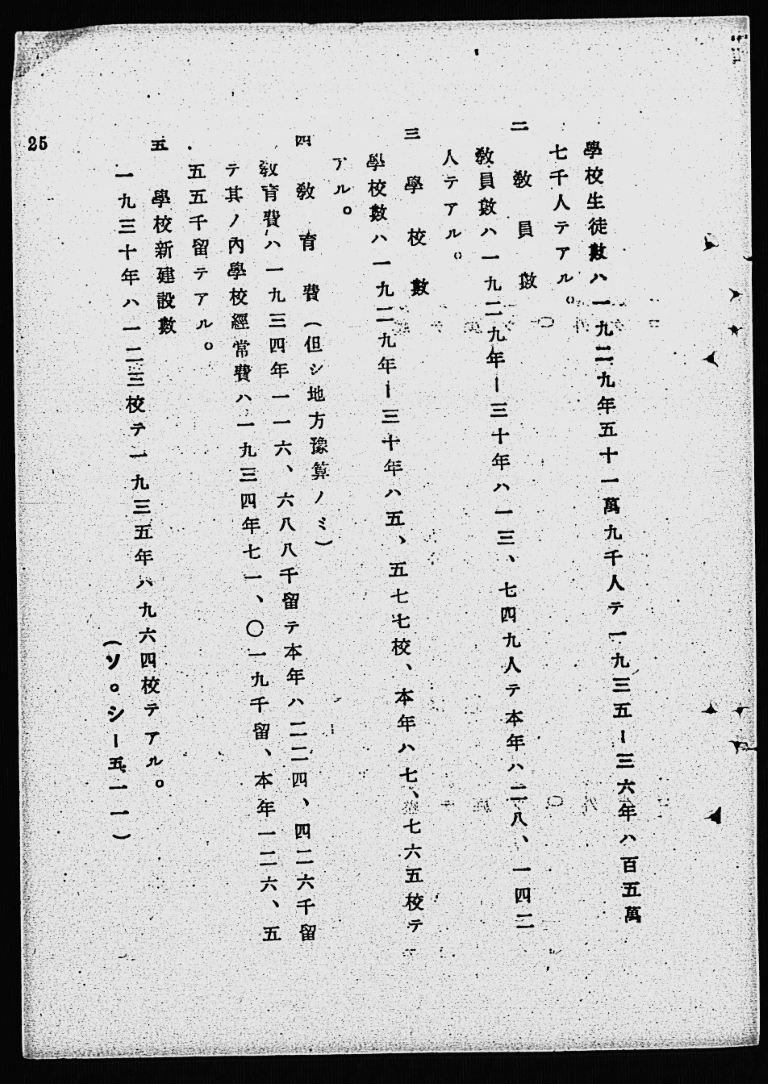 學校生徒數ハ一九二九年五十一萬九千人テ一九三五ー三六年ハ百五萬
七千人テアル。
二 敎員數
敎員數ハ一九二九年ー三十年ハ一三、七四九人テ本年ハ二八、一四二
人テアル。
三 學校數
學校數ハ一九二九年ー三十年ハ五、五七七校、本年ハ七、七六五校テ
アル。
四 敎育費(但シ地方豫算ノミ)
敎育費ハ一九三四年一一六、六八八千留テ本年ハ二二四、四二六千留
テ其ノ內學校經常費ハ一九三四年七一、〇一九千留、本年一二六、五
五五千留テアル。
五 學校新建設數
一九三十年ハ一二三校テ一九三五年ハ九六四校テアル。
(ソ。シー五、一一)
25